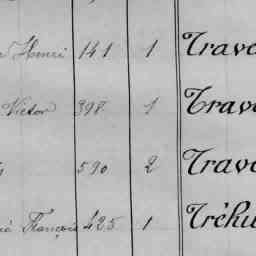 Henri 141 1 Trave
Victor 398 1 Trave
590 2 Trave
François 425 1 Tréhu